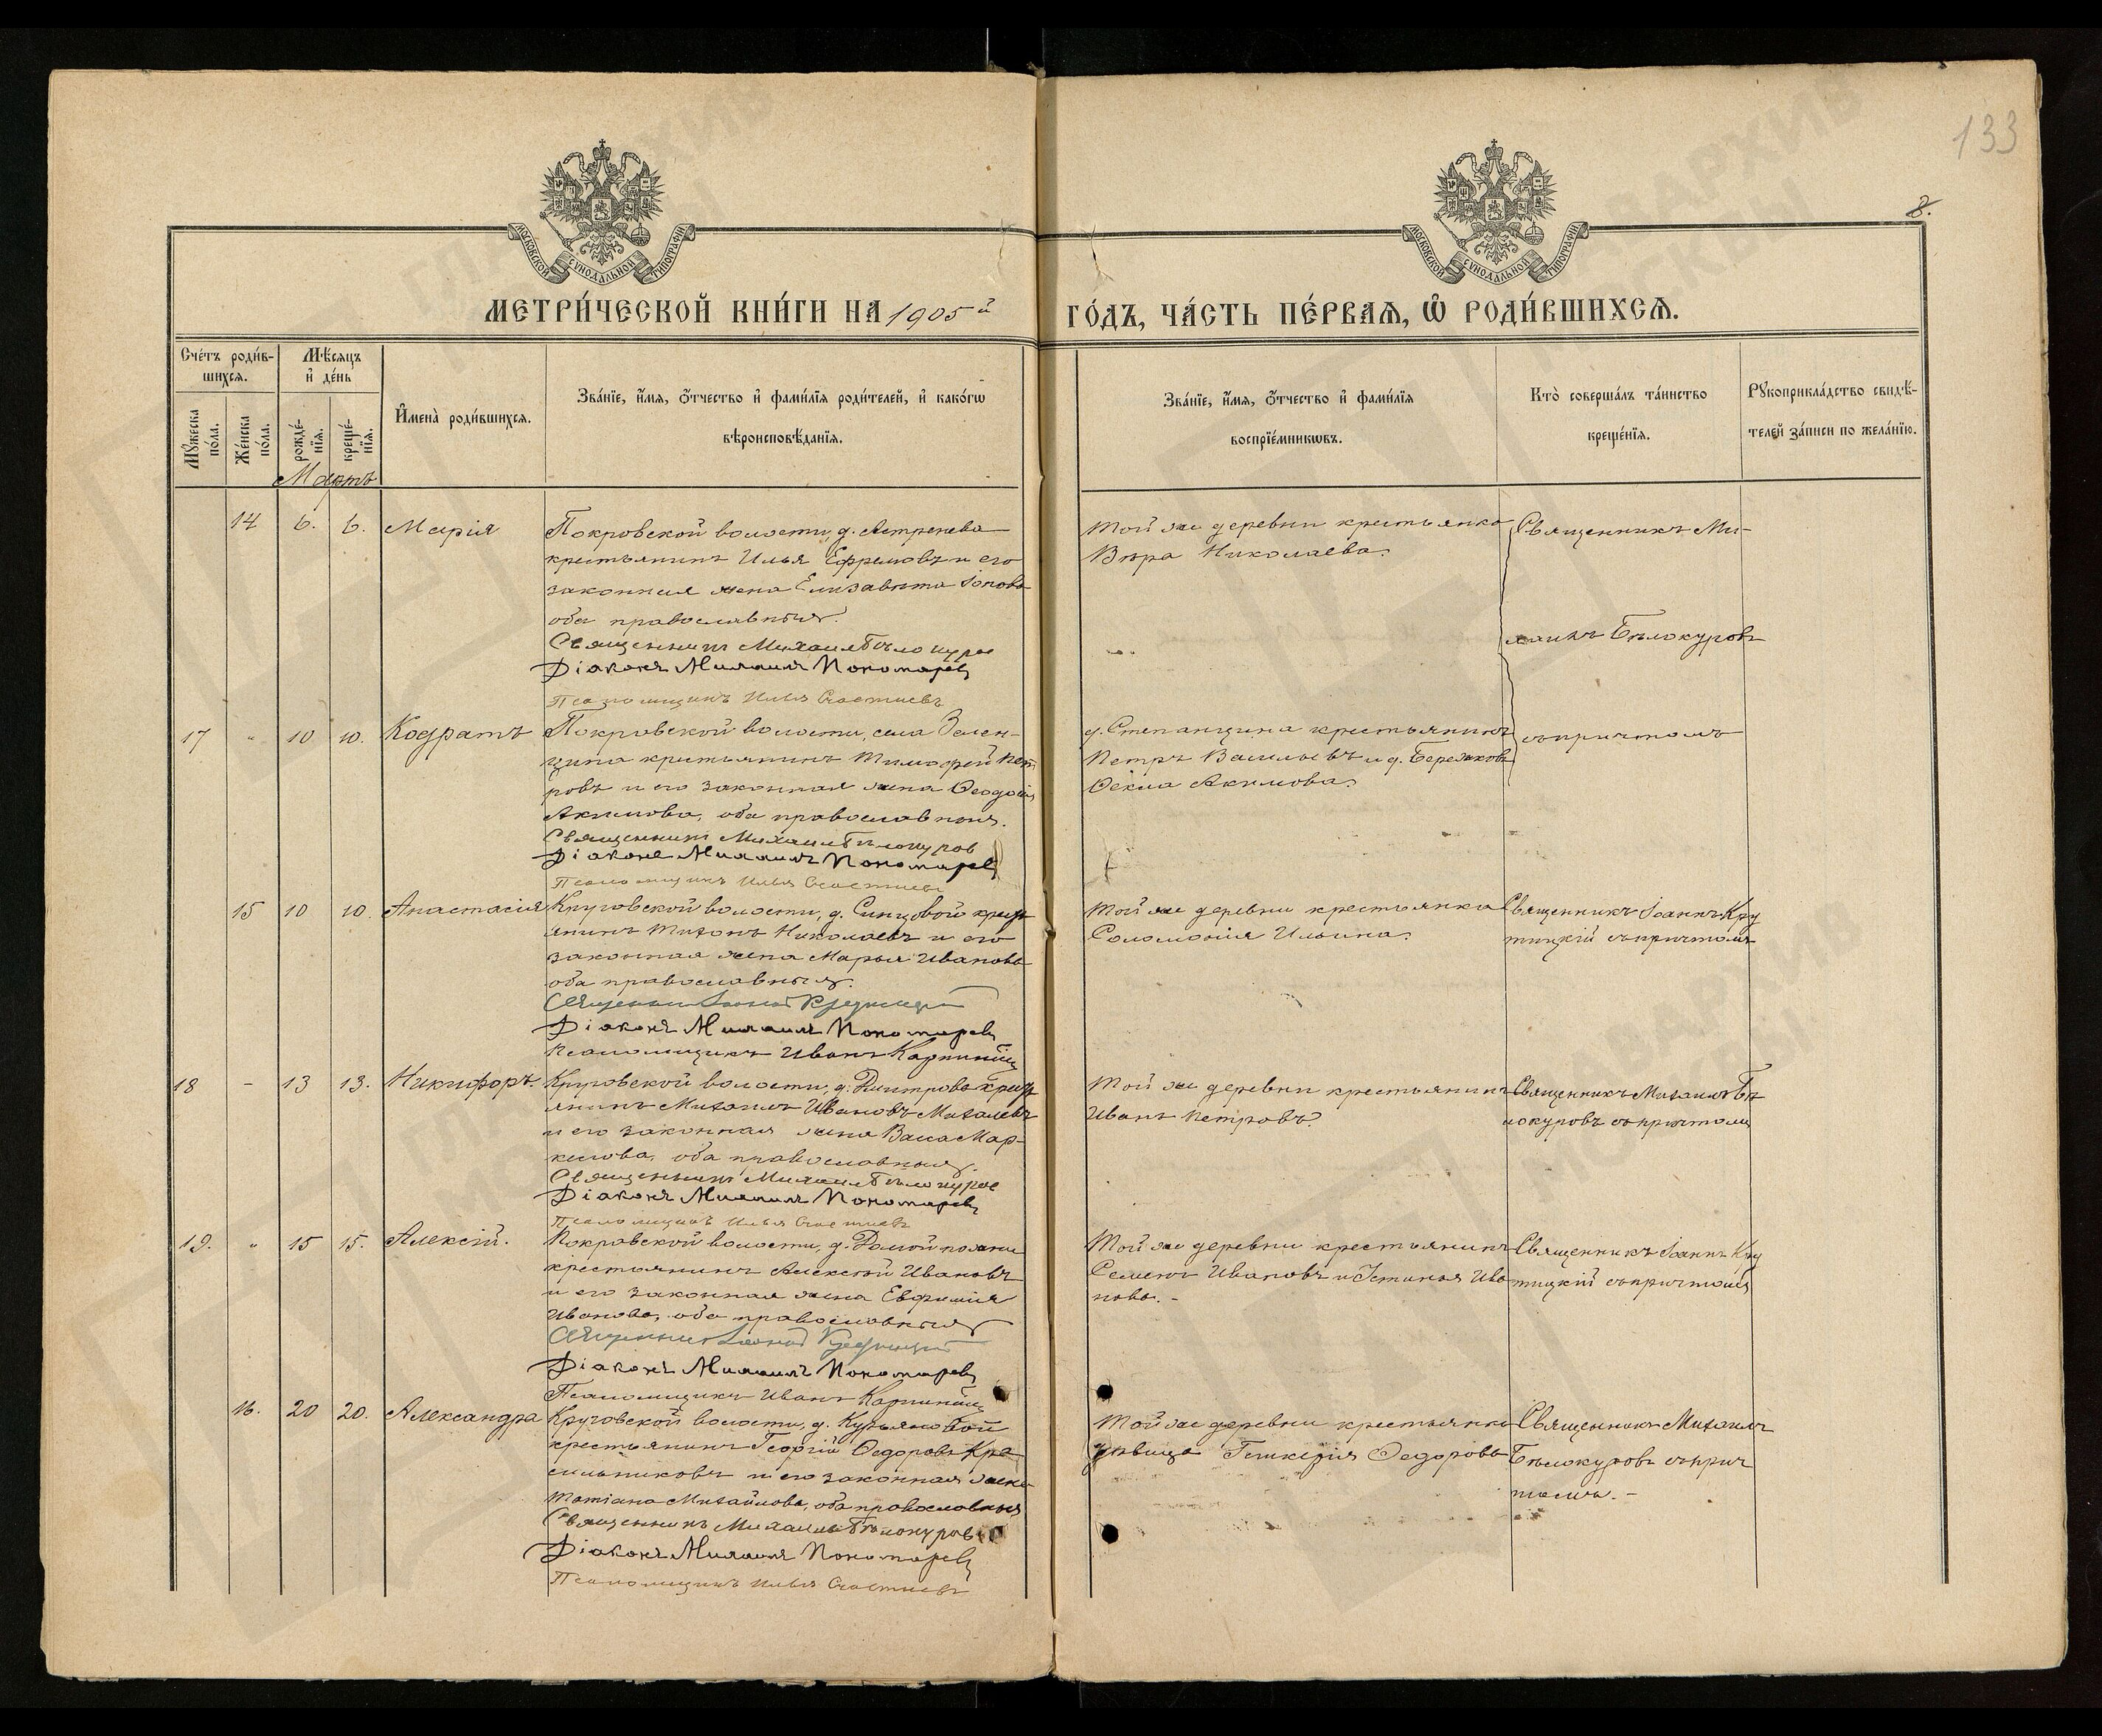 133
8.
МОСКОВСКОЙ СѴНОДАЛЬНОЙ ТИПОГРАФІИ
МОСКОВСКОЙ СѴНОДАЛЬНОЙ ТИПОГРАФІИ
МЕТРИ́ЧЕСКОЙ КНИ́ГИ НА 1905й ГО́ДЪ, ЧА́СТЬ ПЕ́РВАѦ, Ѽ РОДИ́ВШИХСѦ.
Сче́тъ роди́в-
шихсѧ.
Мѣ́сѧцъ
и҆ де́нь
Мꙋ́жеска
по́ла.
Же́нска
по́ла.
рожде́-
нїѧ.
креще́-
нїѧ.
И҆мена̀ роди́вшихсѧ.
Зва́нїе, и҆́мѧ, ѻ҆́тчество и҆ фами́лїѧ роди́телей, и҆ како́гѡ
вѣроисповѣ́данїѧ.
Зва́нїе, и҆́мѧ, ѻ҆́тчество и҆ фами́лїѧ
воспрїе́мникѡвъ.
Кто̀ соверша́лъ та́инство
креще́нїѧ.
Рꙋкоприкла́дство свидѣ́-
телей за́писи по жела́нїю.
Мартъ
14 6. 6. Марія
Покровской волости, д. Астренева
крестьянинъ Илья Ефремовъ и его
законная жена Елизавета Іонова
оба православныя.
Священникъ Михаилъ Бѣлокуров
Діаконъ Михаилъ Пономаревъ
Псаломщикъ Илья Счастневъ
Той же деревни крестьянка
Вѣра Николаева.
Священникъ Ми-
хаилъ Бѣлокуровъ
съ причтомъ
17 " 10 10. Кодратъ
Покровской волости, села Зелен-
цина крестьянинъ Тимофей Пет-
ровъ и его законная жена Ѳеодосія
Акимова, оба православныя.
Священникъ Михаилъ Бѣлокуров
Діаконъ Михаилъ Пономаревъ
Псаломщикъ Илья Счастневъ
д. Степанцина крестьянинъ
Петръ Васильевъ и д. Бережковъ
Ѳекла Акимова.
15 10 10. Анастасія
Круговской волости, д. Синцовой крест
янинъ Тихонъ Николаевъ и его
законная жена Марья Иванова
оба православныя.
Священникъ Іоаннъ Крутицкій
Діаконъ Михаилъ Пономаревъ
Псаломщикъ Иванъ Карпинскій
Той же деревни крестьянка
Соломонія Ильина.
Священникъ Іоаннъ Кру
тицкій съ причтомъ
18 - 13 13. Никифоръ.
Круговской волости, д. Дмитрова крест
янинъ Михаилъ Ивановъ Михалевъ
и его законная жена Васса Мар-
келова, оба православныя.
Священникъ Михаилъ Бѣлокуров
Діаконъ Михаилъ Пономаревъ
Псаломщикъ Илья Счастневъ
Той же деревни крестьянинъ
Иванъ Петровъ.
Священникъ Михаилъ Бѣ
локуровъ съ причтомъ
19. " 15 15. Алексій.
Покровской волости, д. Долгой поляны
крестьянинъ Алексѣй Ивановъ
и его законная жена Евфимія
Иванова, оба православныя
Священникъ Іоаннъ Крутицкій
Діаконъ Михаилъ Пономаревъ
Псаломщикъ Иванъ Карпинскій
Той же деревни крестьянинъ
Семенъ Ивановъ и Устинья Ива
нова. -
Священникъ Іоаннъ Кру
тицкій съ причтомъ
16. 20 20. Александра
Круговской волости, д. Кузьяновой
крестьянинъ Георгій Ѳедоровъ Кра
сильниковъ и его законная жена
Татіана Михайлова, оба православныя
Священникъ Михаилъ Бѣлокуровъ
Діаконъ Михаилъ Пономаревъ
Псаломщикъ Илья Счастневъ
Той же деревни крестьянка
дѣвица Гликерія Ѳедорова
Священникъ Михаилъ
Бѣлокуровъ съ прич
томъ. -